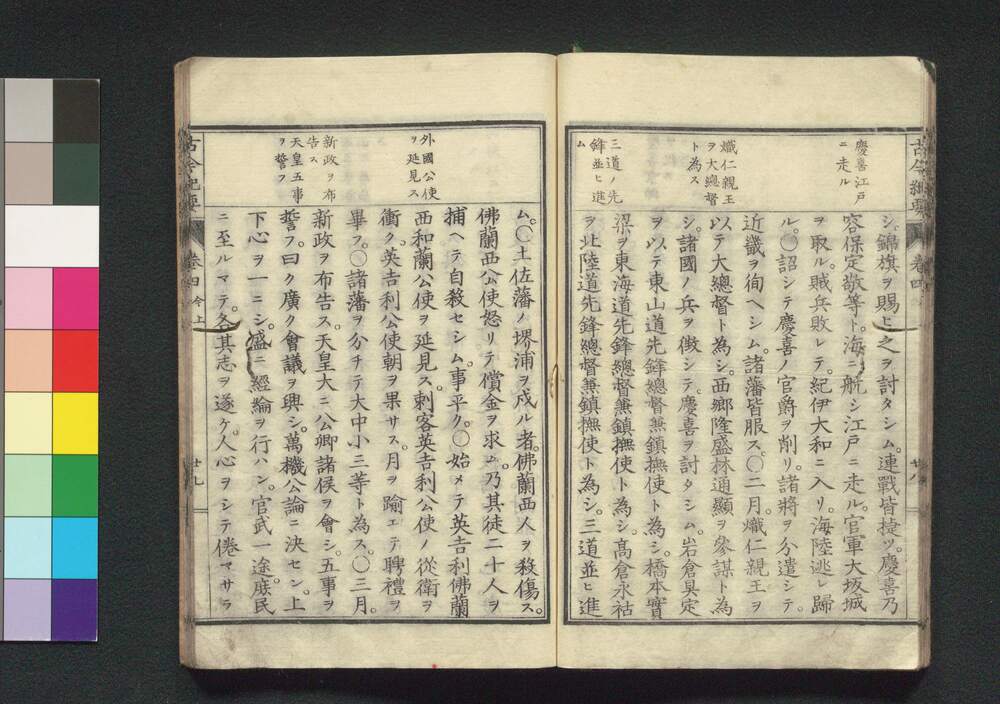 慶喜江戸
ニ走ル
熾仁親王
ヲ大總督
ト為ス
三道ノ先
鋒並ヒ進
ム
シ。錦旗ヲ賜ヒ之ヲ討タシム。連戰皆捷ツ。慶喜乃
容保定敬等ト。海ニ航シ江戸ニ走ル。官軍大坂城
ヲ取ル。賊兵敗レテ。紀伊大和ニ入リ。海陸逃レ歸
ル。〇詔シテ慶喜ノ官爵ヲ削リ。諸將ヲ分遣シテ。
近畿ヲ徇ヘシム。諸藩皆服ス。〇二月。熾仁親王ヲ
以テ大總督ト為シ。西郷隆盛林通顯ヲ參謀ト為
シ。諸國ノ兵ヲ徴シテ。慶喜ヲ討タシム。岩倉具定
ヲ以テ東山道先鋒總督兼鎮撫使ト為シ。橋本實
梁ヲ東海道先鋒總督兼鎮撫使ト為シ。高倉永祜
ヲ北陸道先鋒總督兼鎮撫使ト為シ。三道並ヒ進
外國公使
ヲ延見ス
新政ヲ布
告ス
天皇五事
ヲ誓フ
ム。〇土佐藩ノ堺浦ヲ戍ル者。佛蘭西人ヲ殺傷ス。
佛蘭西公使怒リテ償金ヲ求ム。乃其徒二十人ヲ
捕ヘテ自殺セシム。事平ク。〇始メテ英吉利佛蘭
西和蘭公使ヲ延見ス。刺客英吉利公使ノ從衛ヲ
衝ク。英吉利公使朝ヲ果サス。月ヲ踰エテ聘禮ヲ
畢フ。〇諸藩ヲ分チテ大中小三等ト為ス。〇三月。
新政ヲ布告ス。天皇大ニ公卿諸侯ヲ會シ。五事ヲ
誓フ。曰ク廣ク會議ヲ興シ。萬機公論ニ決セン。上
下心ヲ一ニシ。盛ニ經綸ヲ行ハン。官武一途。庶民
ニ至ルマテ。各其志ヲ遂ケ。人心ヲシテ倦マサラ
古今紀要
卷四
今上
廿九